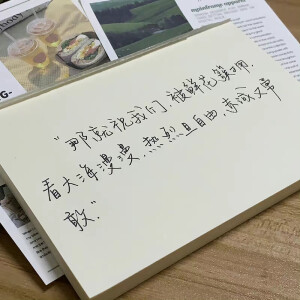 “那就祝我们，被鲜花簇拥.
看大海漫漫.热烈且自由.赤诚又勇
敢”.